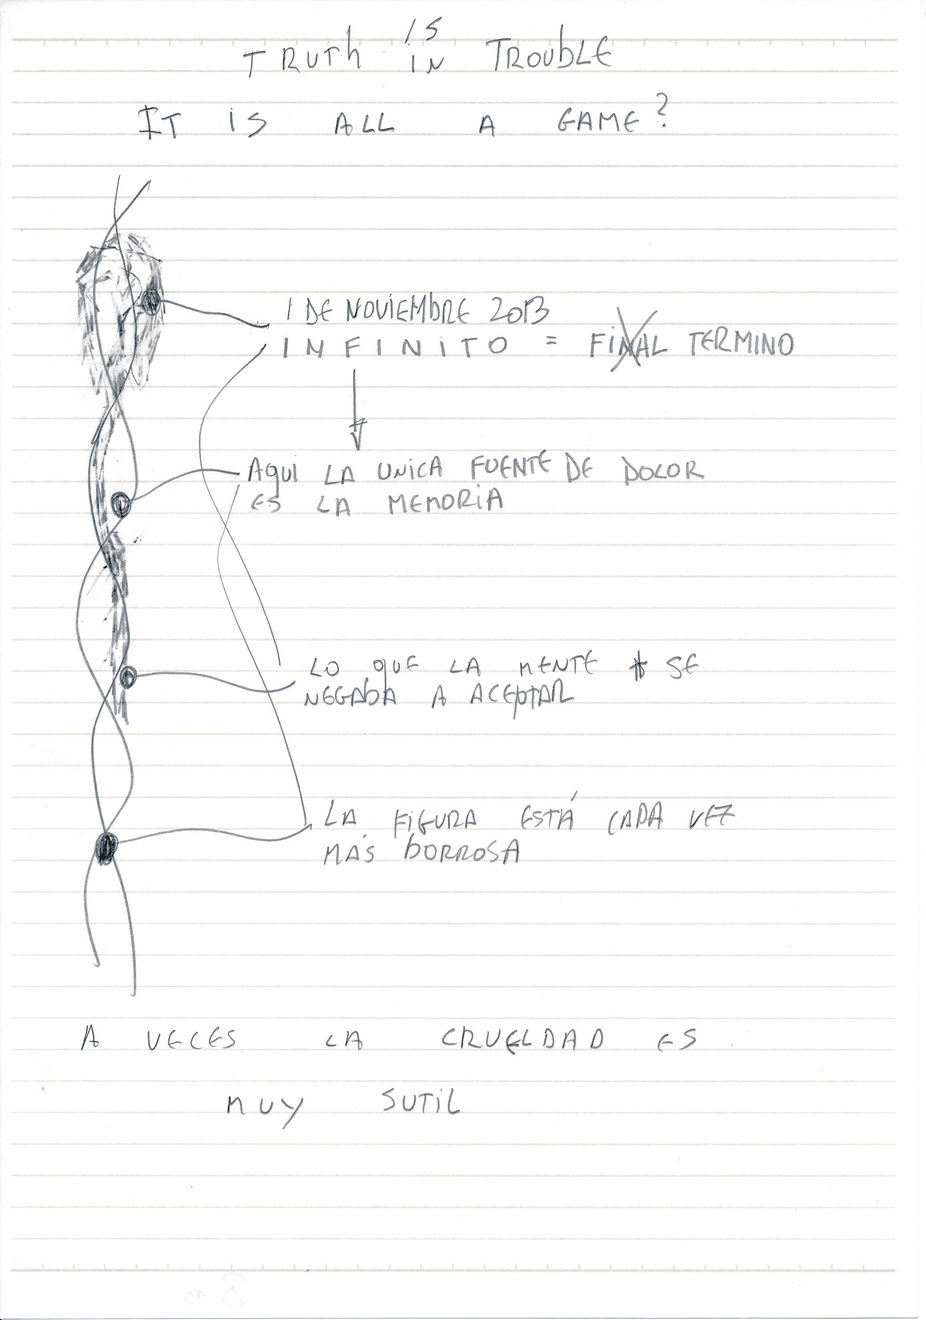 TRUTH IS IN TROUBLE
IT IS ALL A GAME?
1 DE NOVIEMBRE 2013
INFINITO = FINAL TERMINO
AQUI LA UNICA FUENTE DE DOLOR
ES LA MEMORIA
LO QUE LA MENTE SE
NEGABA A ACEPTAR
LA FIGURA ESTÁ CADA VEZ
MÁS BORROSA
A VECES LA CRUELDAD ES
MUY SUTIL